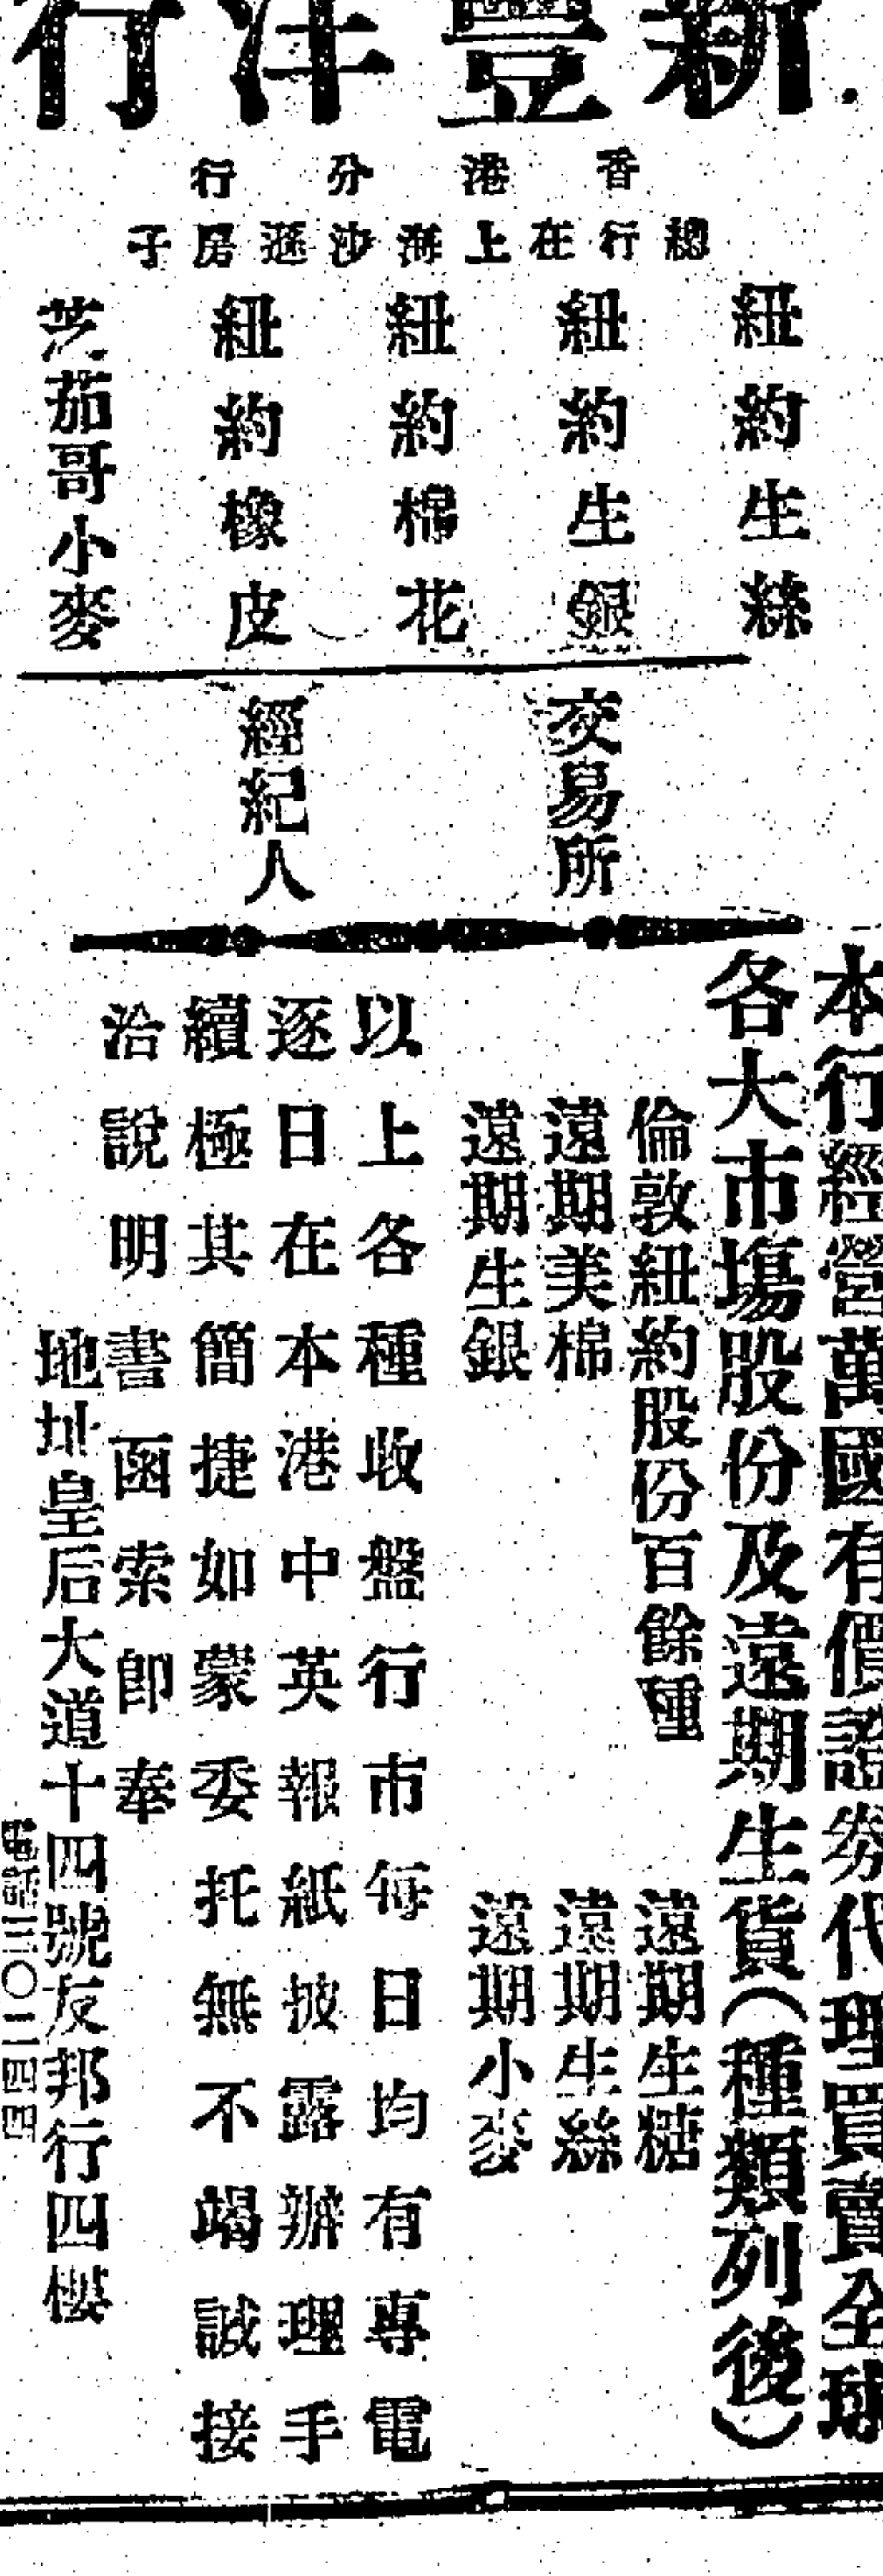 新豐洋行
香港分行
總行在上海沙遜房子
紐約生絲
紐約生銀
紐約棉花
紐約橡皮
芝茄哥小麥
交易所
經紀人
本行經營萬國有價證券代理買賣全球
各大市塲股份及遠期生貨(種類列後)
倫敦紐約股份百餘種
遠期生糖
遠期美棉
遠期生絲
遠期生銀
遠期小麥
以上各種收盤行市每日均有專電
逐日在本港中英報紙披露辦理手
續極其簡捷如蒙委托無不竭誠接
洽說明書函索即奉
地址皇后大道十四號友邦行四樓
電話三〇二四四